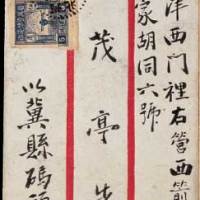 津西門裡右營西箭
家胡同六號
茂亭先
以冀縣碼頭